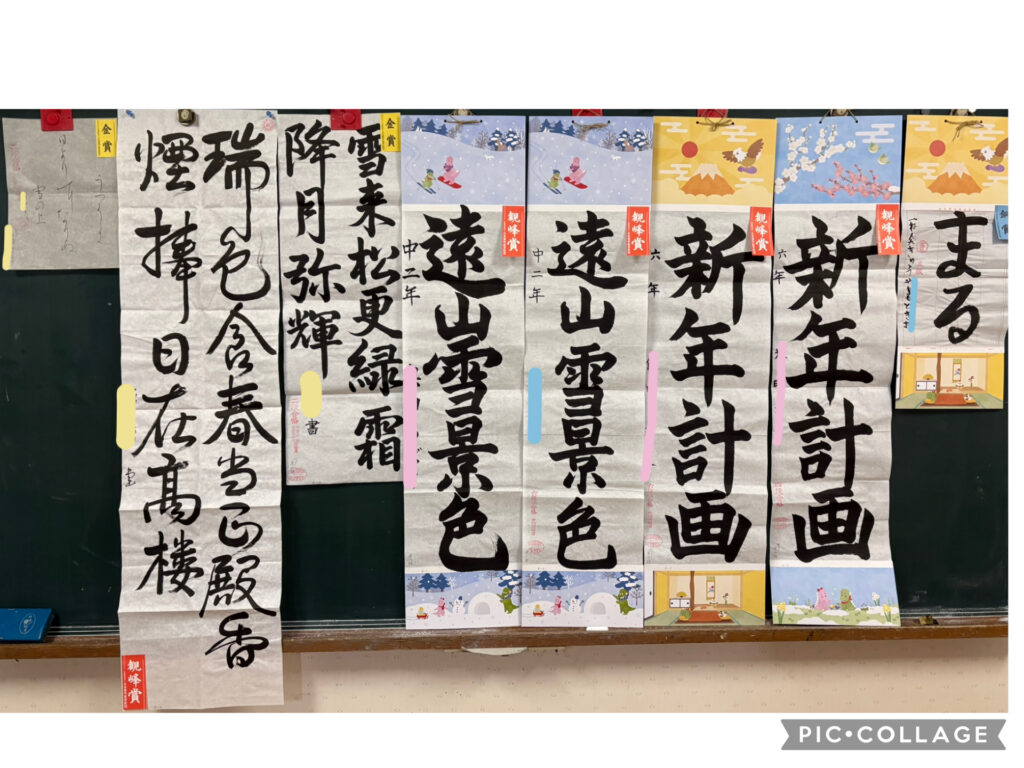 まる
銀賞
新年計画
六年
観峰賞
新年計画
六年
観峰賞
遠山雪景色
中二年
観峰賞
遠山雪景色
中二年
観峰賞
雪来松更緑霜
降月弥輝
書
金賞
瑞色含春当正殿香
煙捧日在高楼
観峰賞
金賞
PIC•COLLAGE